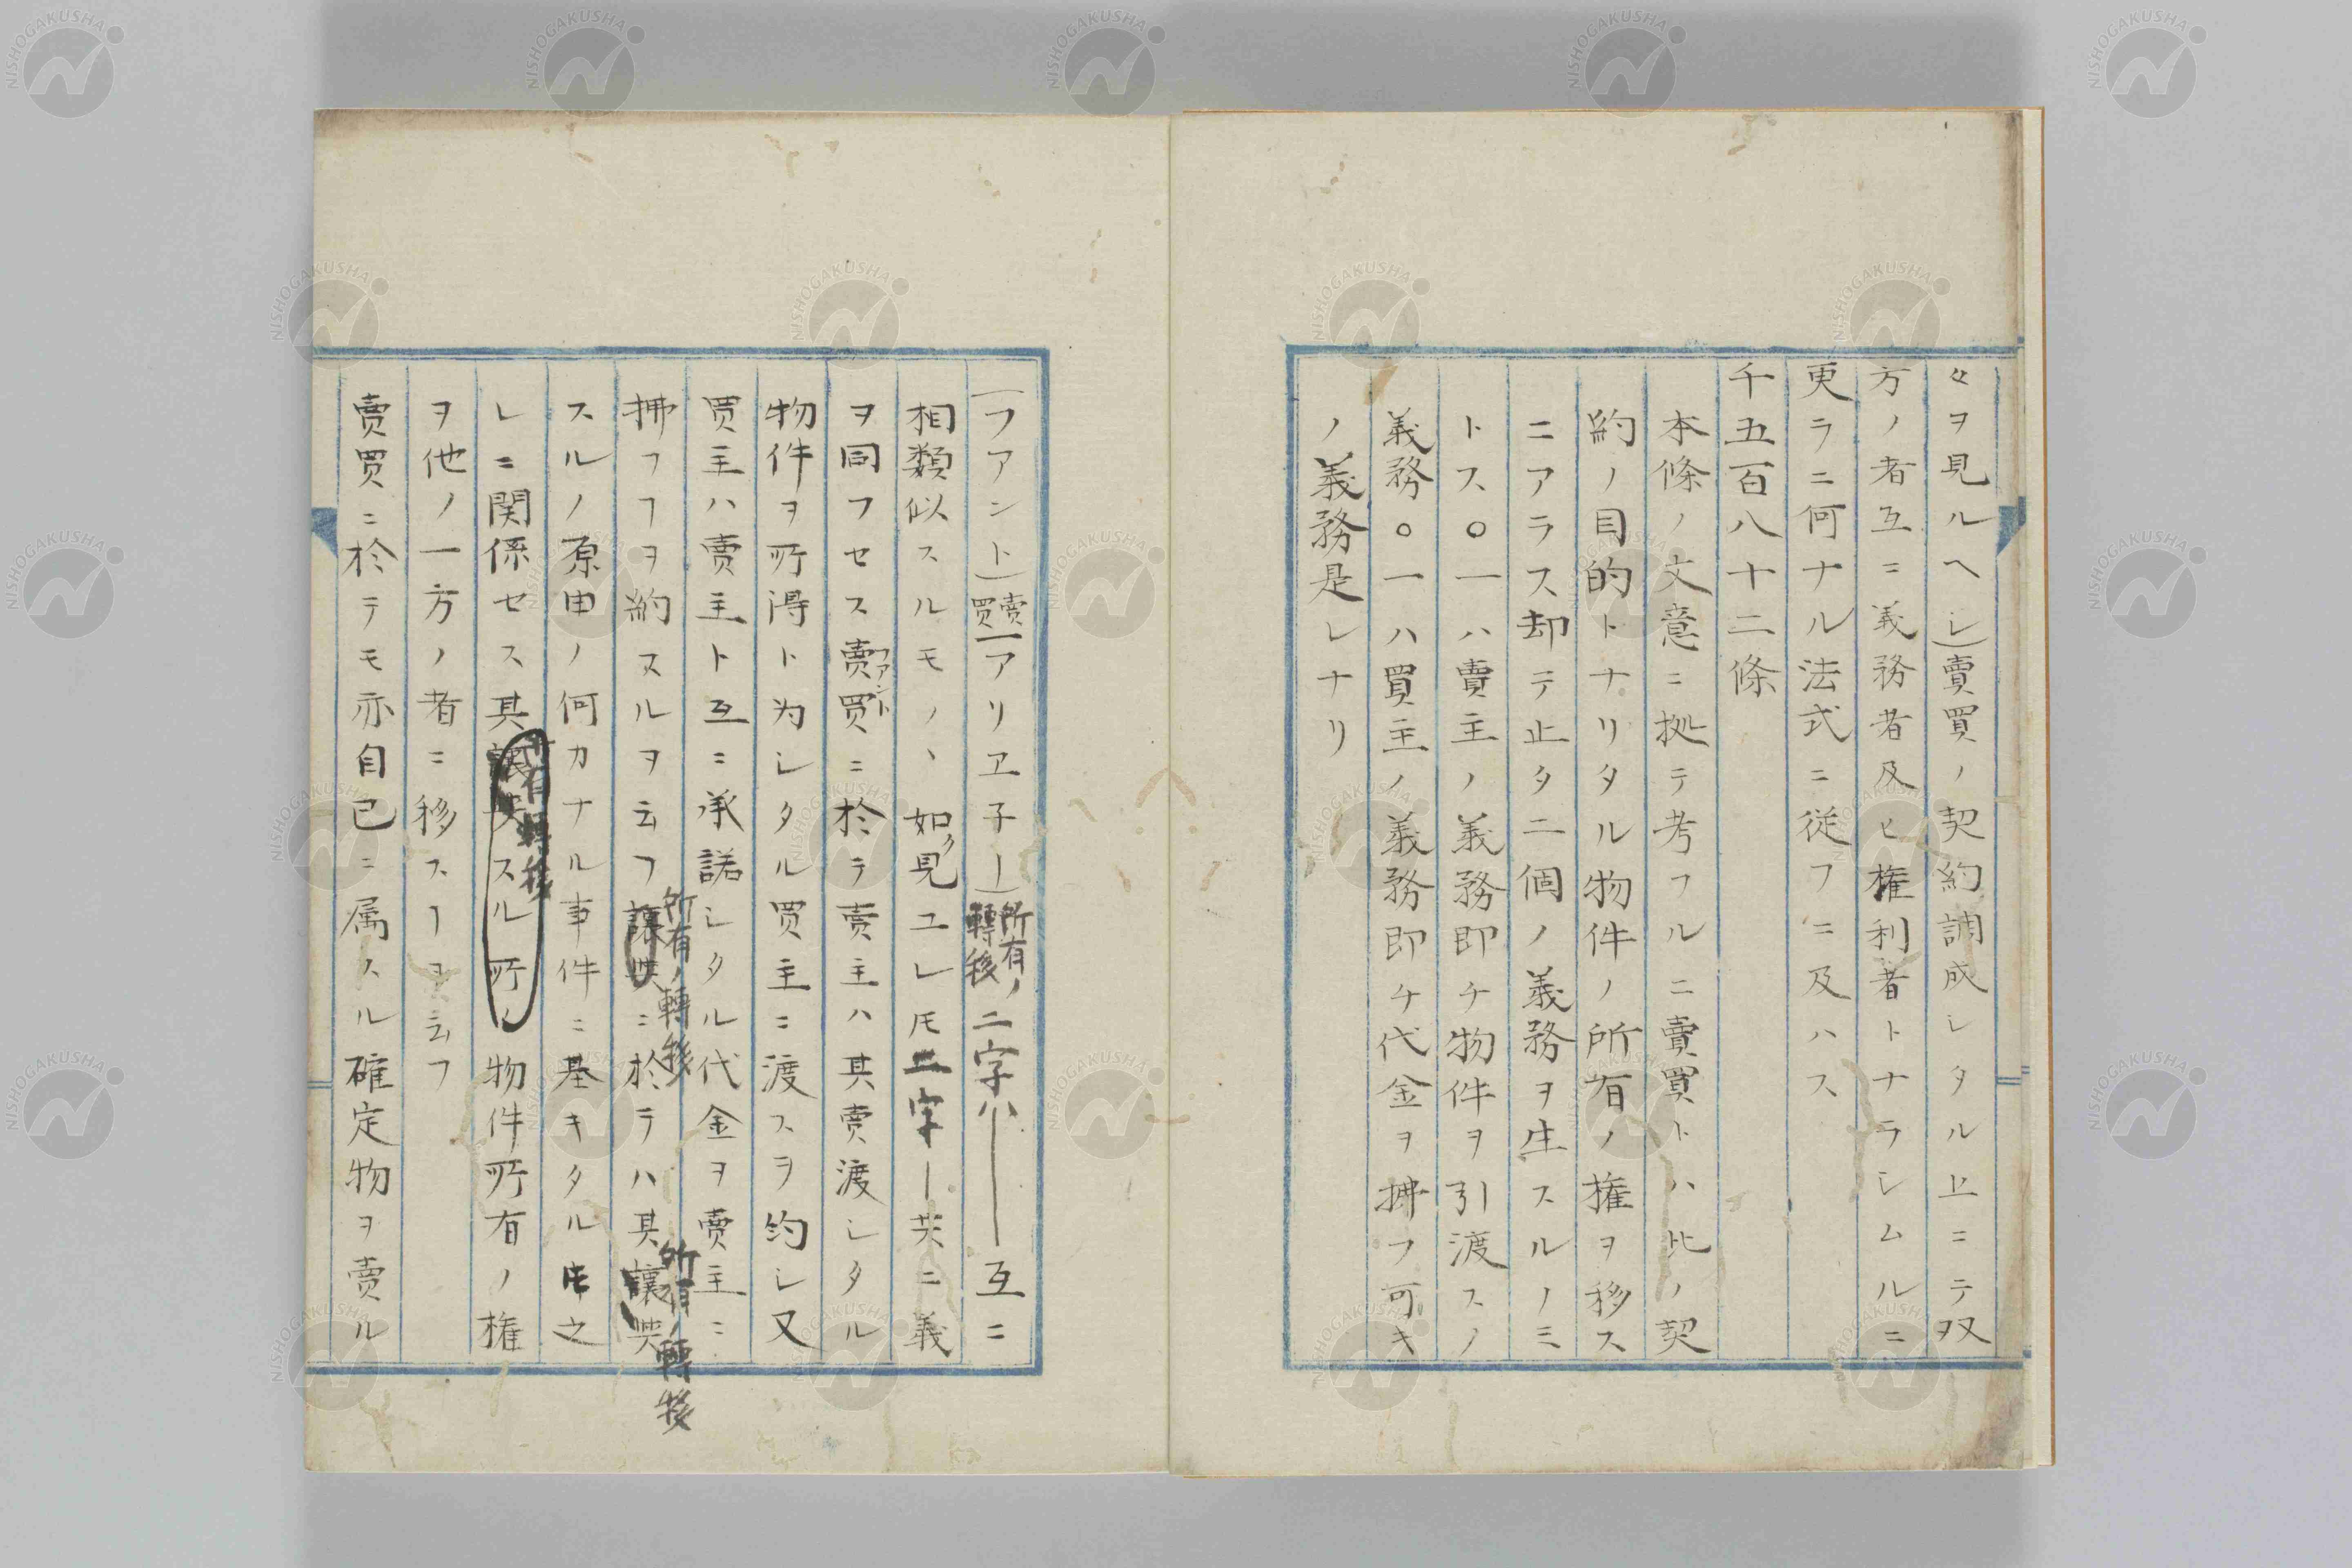 々ヲ見ルヘシ)賣買ノ契約調成シタル上ニテ双
方ノ者互ニ義務者及ヒ権利者トナラシムルニ
更ラニ何ナル法式ニ従フニ及ハス
千五百八十二條
本條ノ文意ニ拠テ考フルニ賣買トハ此ノ契
約ノ目的トナリタル物件ノ所有ノ権ヲ移ス
ニアラス却テ止タ二個ノ義務ヲ生スルノミ
トス○一ハ賣主ノ義務即チ物件ヲ引渡スノ
義務○一ハ買主ノ義務即チ代金ヲ拂フ可キ
ノ義務是レナリ
(フアント)賣買(アリヱ子ー)所有ノ轉移ノ二字ハ互ニ
相類似スルモノヽ如ク見ユレ𪜈二字ー共ニ義
ヲ同フセス賣買フアントニ於テ賣主ハ其賣渡シタル
物件ヲ所得ト为シタル買主ニ渡スヲ約シ又
買主ハ賣主ト互ニ承諾シタル代金ヲ賣主ニ
拂フヿヲ約スルヲ云フ讓與所有ノ轉移ニ於テハ其讓與所有ノ轉移
スルノ原由ノ何カナル事件ニ基キタル𪜈之
レニ関係セス其所有轉移スル所ノ物件所有ノ権
ヲ他ノ一方ノ者ニ移スヿヲ云フ
賣買ニ於テモ亦自己ニ属スル確定物ヲ賣ル
NISHOGAKUSHA